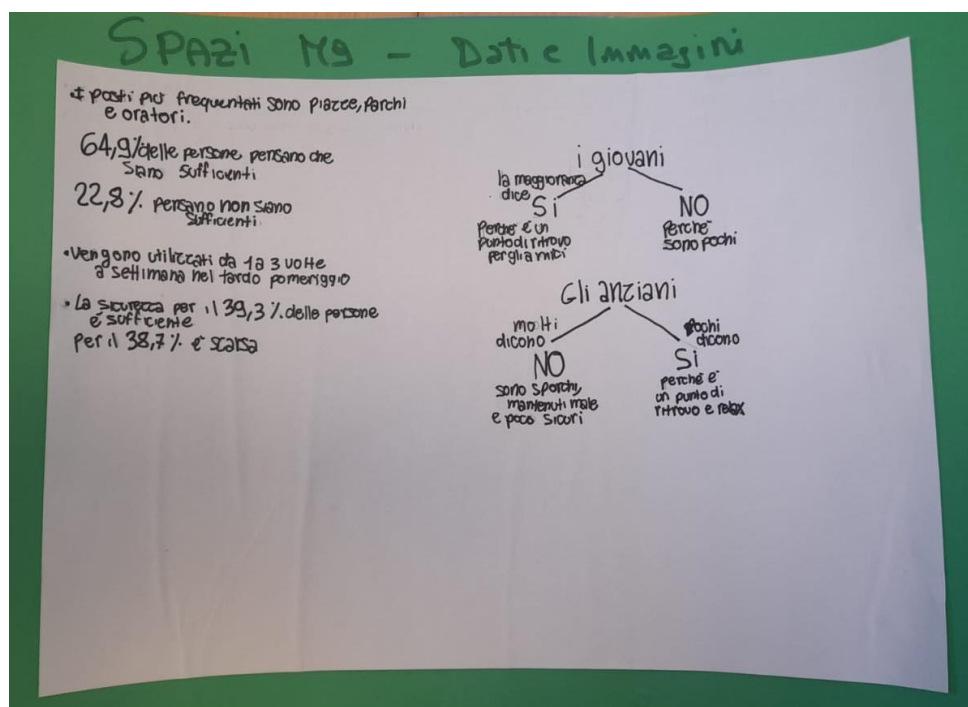 SPAZI M9 - Dati e Immagini
• I posti più frequentati sono piazze, parchi
e oratori.
64,9% delle persone pensano che
siano sufficienti
22,8% pensano non siano
sufficienti
• Vengono utilizzati da 1 a 3 volte
a settimana nel tardo pomeriggio
• La sicurezza per il 39,3% delle persone
è sufficiente
Per il 38,7% è scarsa
i giovani
la maggioranza
dice
Si
perché è un
punto di ritrovo
per gli amici
NO
Perché
sono pochi
Gli anziani
molti
dicono
NO
sono sporchi,
mantenuti male
e poco sicuri
Pochi
dicono
Si
perché è
un punto di
ritrovo e relax